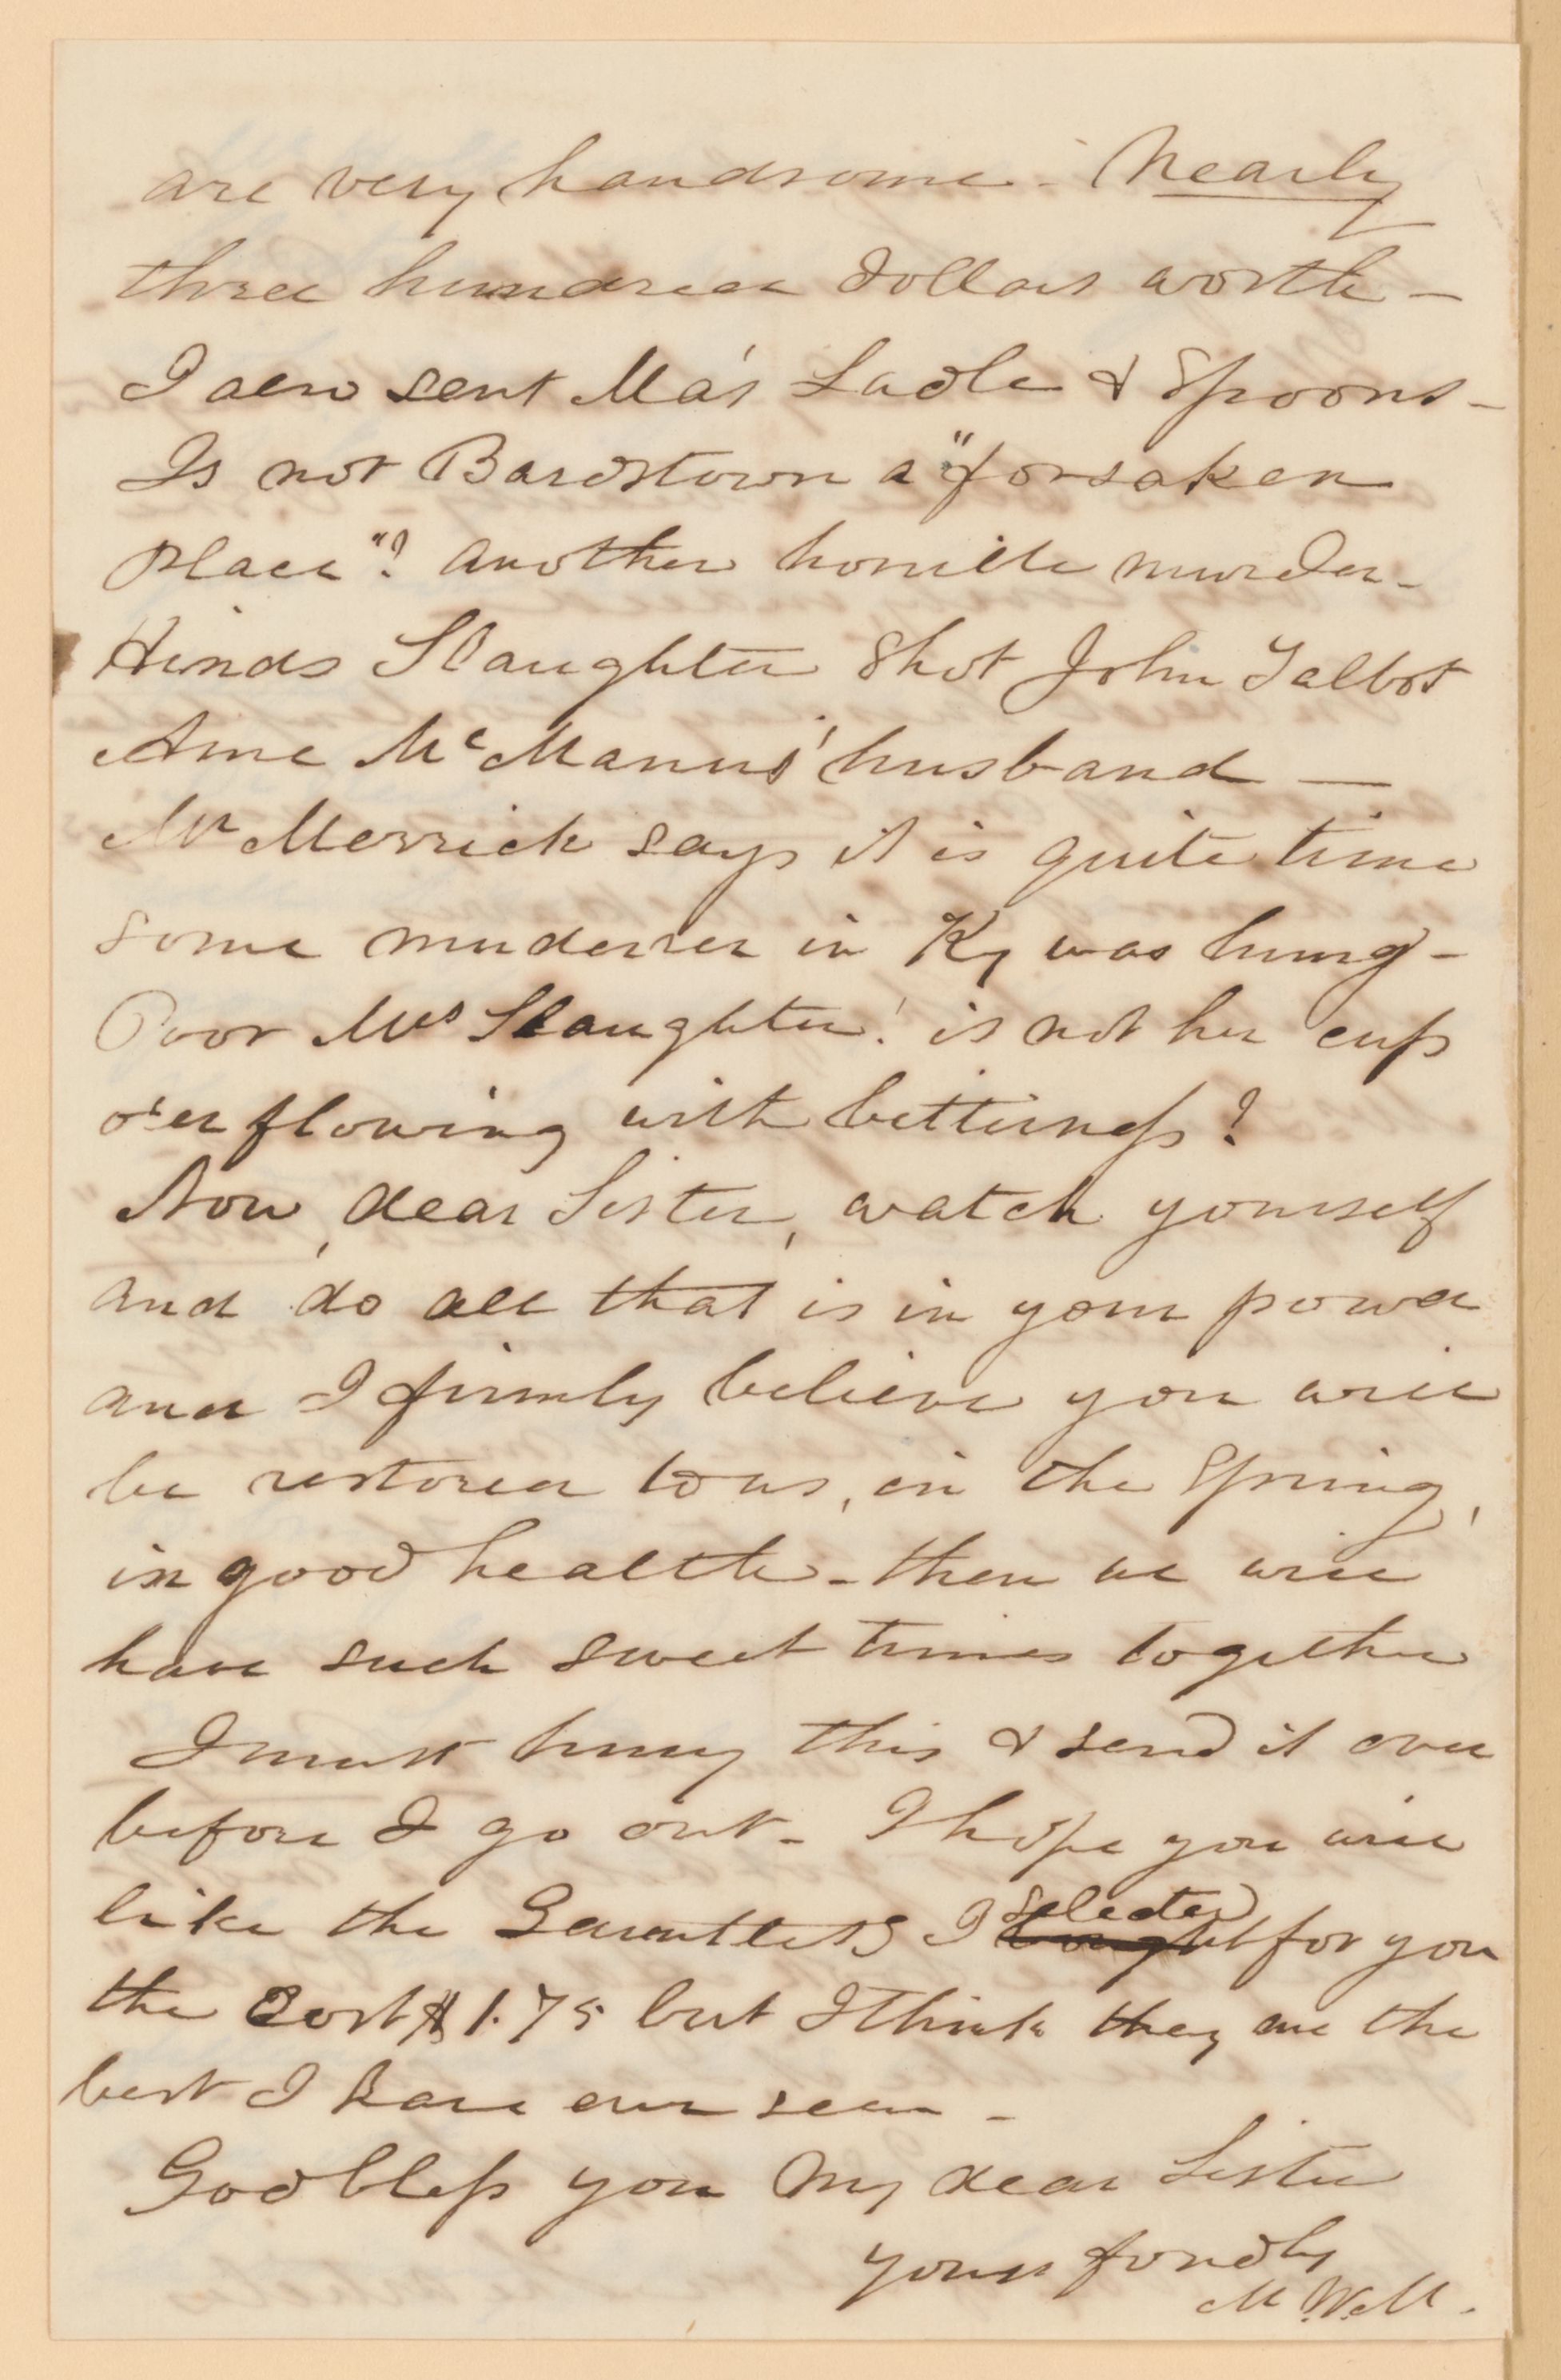 are very handsome - Nearly
three hundred dollars worth -
I also sent Ma's Ladle & Spoons -
Is not Bardstown a "forsaken
place"? another horrible murder -
Hinds Slaughter Shot John Talbot
Anne McManus' husband —
Mr Merrick says it is quite time
some murderer in Ky was hung -
Poor Mrs Slaughter! is not her cup
o'erflowing with bitterness?
Now, dear Sister, watch yourself
and do all that is in your power
and I firmly believe you will
be restored to us, in the Spring,
in good health - then we will
have such sweet times together
I must hurry this & send it over
before I go out - I hope you will
like the Gauntlets I selected bought for you
the cost $1.75 but I think they are the
best I have ever seen -
God bless you my dear Sister
yours fondly
M. W. M.